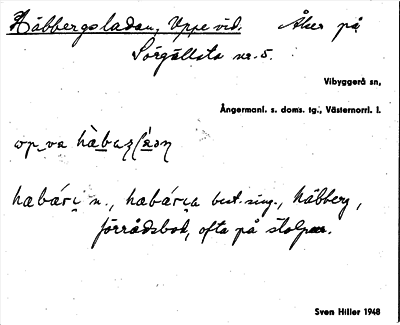 Häbbergsladan, Uppe vid. Åker på
Sörgällsta nr. 5.
Vibyggerå sn,
Ångermanl. s. doms. tg., Västernorrl. l.
op va
n., best. sing., häbberg,
förrådsbod, ofta på stolpar.
Sven Hiller 1948